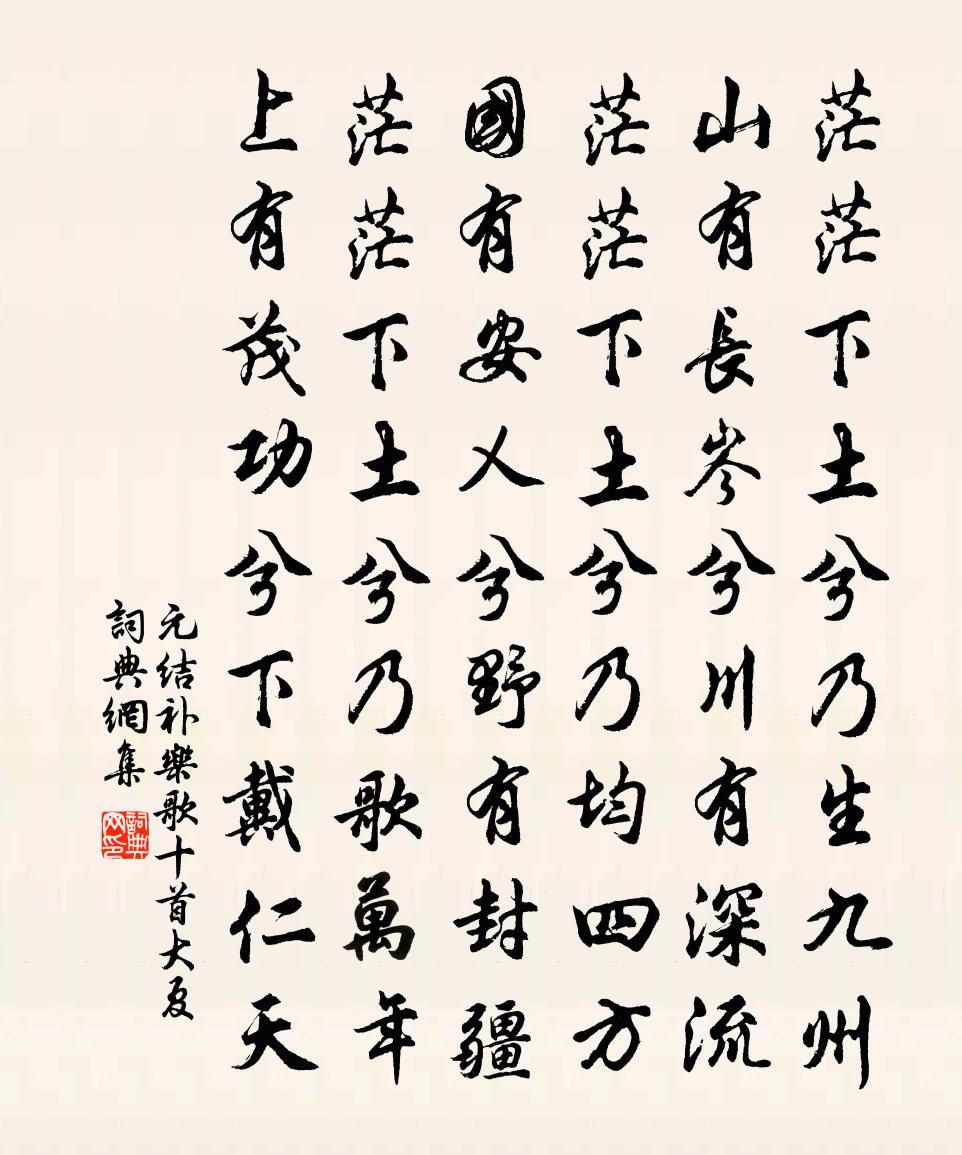 茫茫下土兮乃生九州
山有長岑兮川有深流
茫茫下土兮乃均四方
國有安乂兮野有封疆
茫茫下土兮乃歌萬年
上有茂功兮下戴仁天
元结补樂歌十首大夏
詞典網集
詞典网印